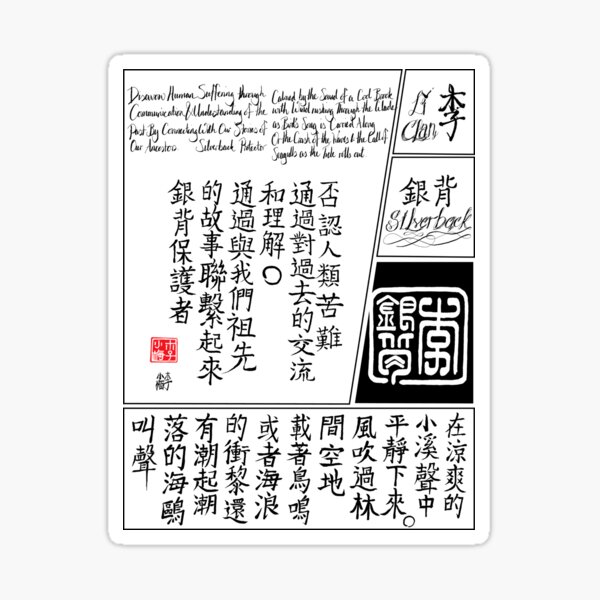 Disavow Human Suffering through
Communication & Understanding of the
Past By Connecting With Our Stories of
Our Ancestors Silverback Protector
Calmed by the Sound of a Cool Brook
with Wind rushing through the Glade
as Birds Song is Carried Along
Or the Crash of the Waves & the Call of
Seagulls as the Tide rolls out
Li
Clan
李
銀背
Silverback
否認人類苦難
通過對過去的交流
和理解。
通過與我們祖先
的故事聯繫起來
銀背保護者
李
銀背
在涼爽的
小溪聲中
平靜下來。
風吹過林
間空地
載著鳥鳴
或者海浪
的衝黎還
有潮起潮
落的海鷗
叫聲